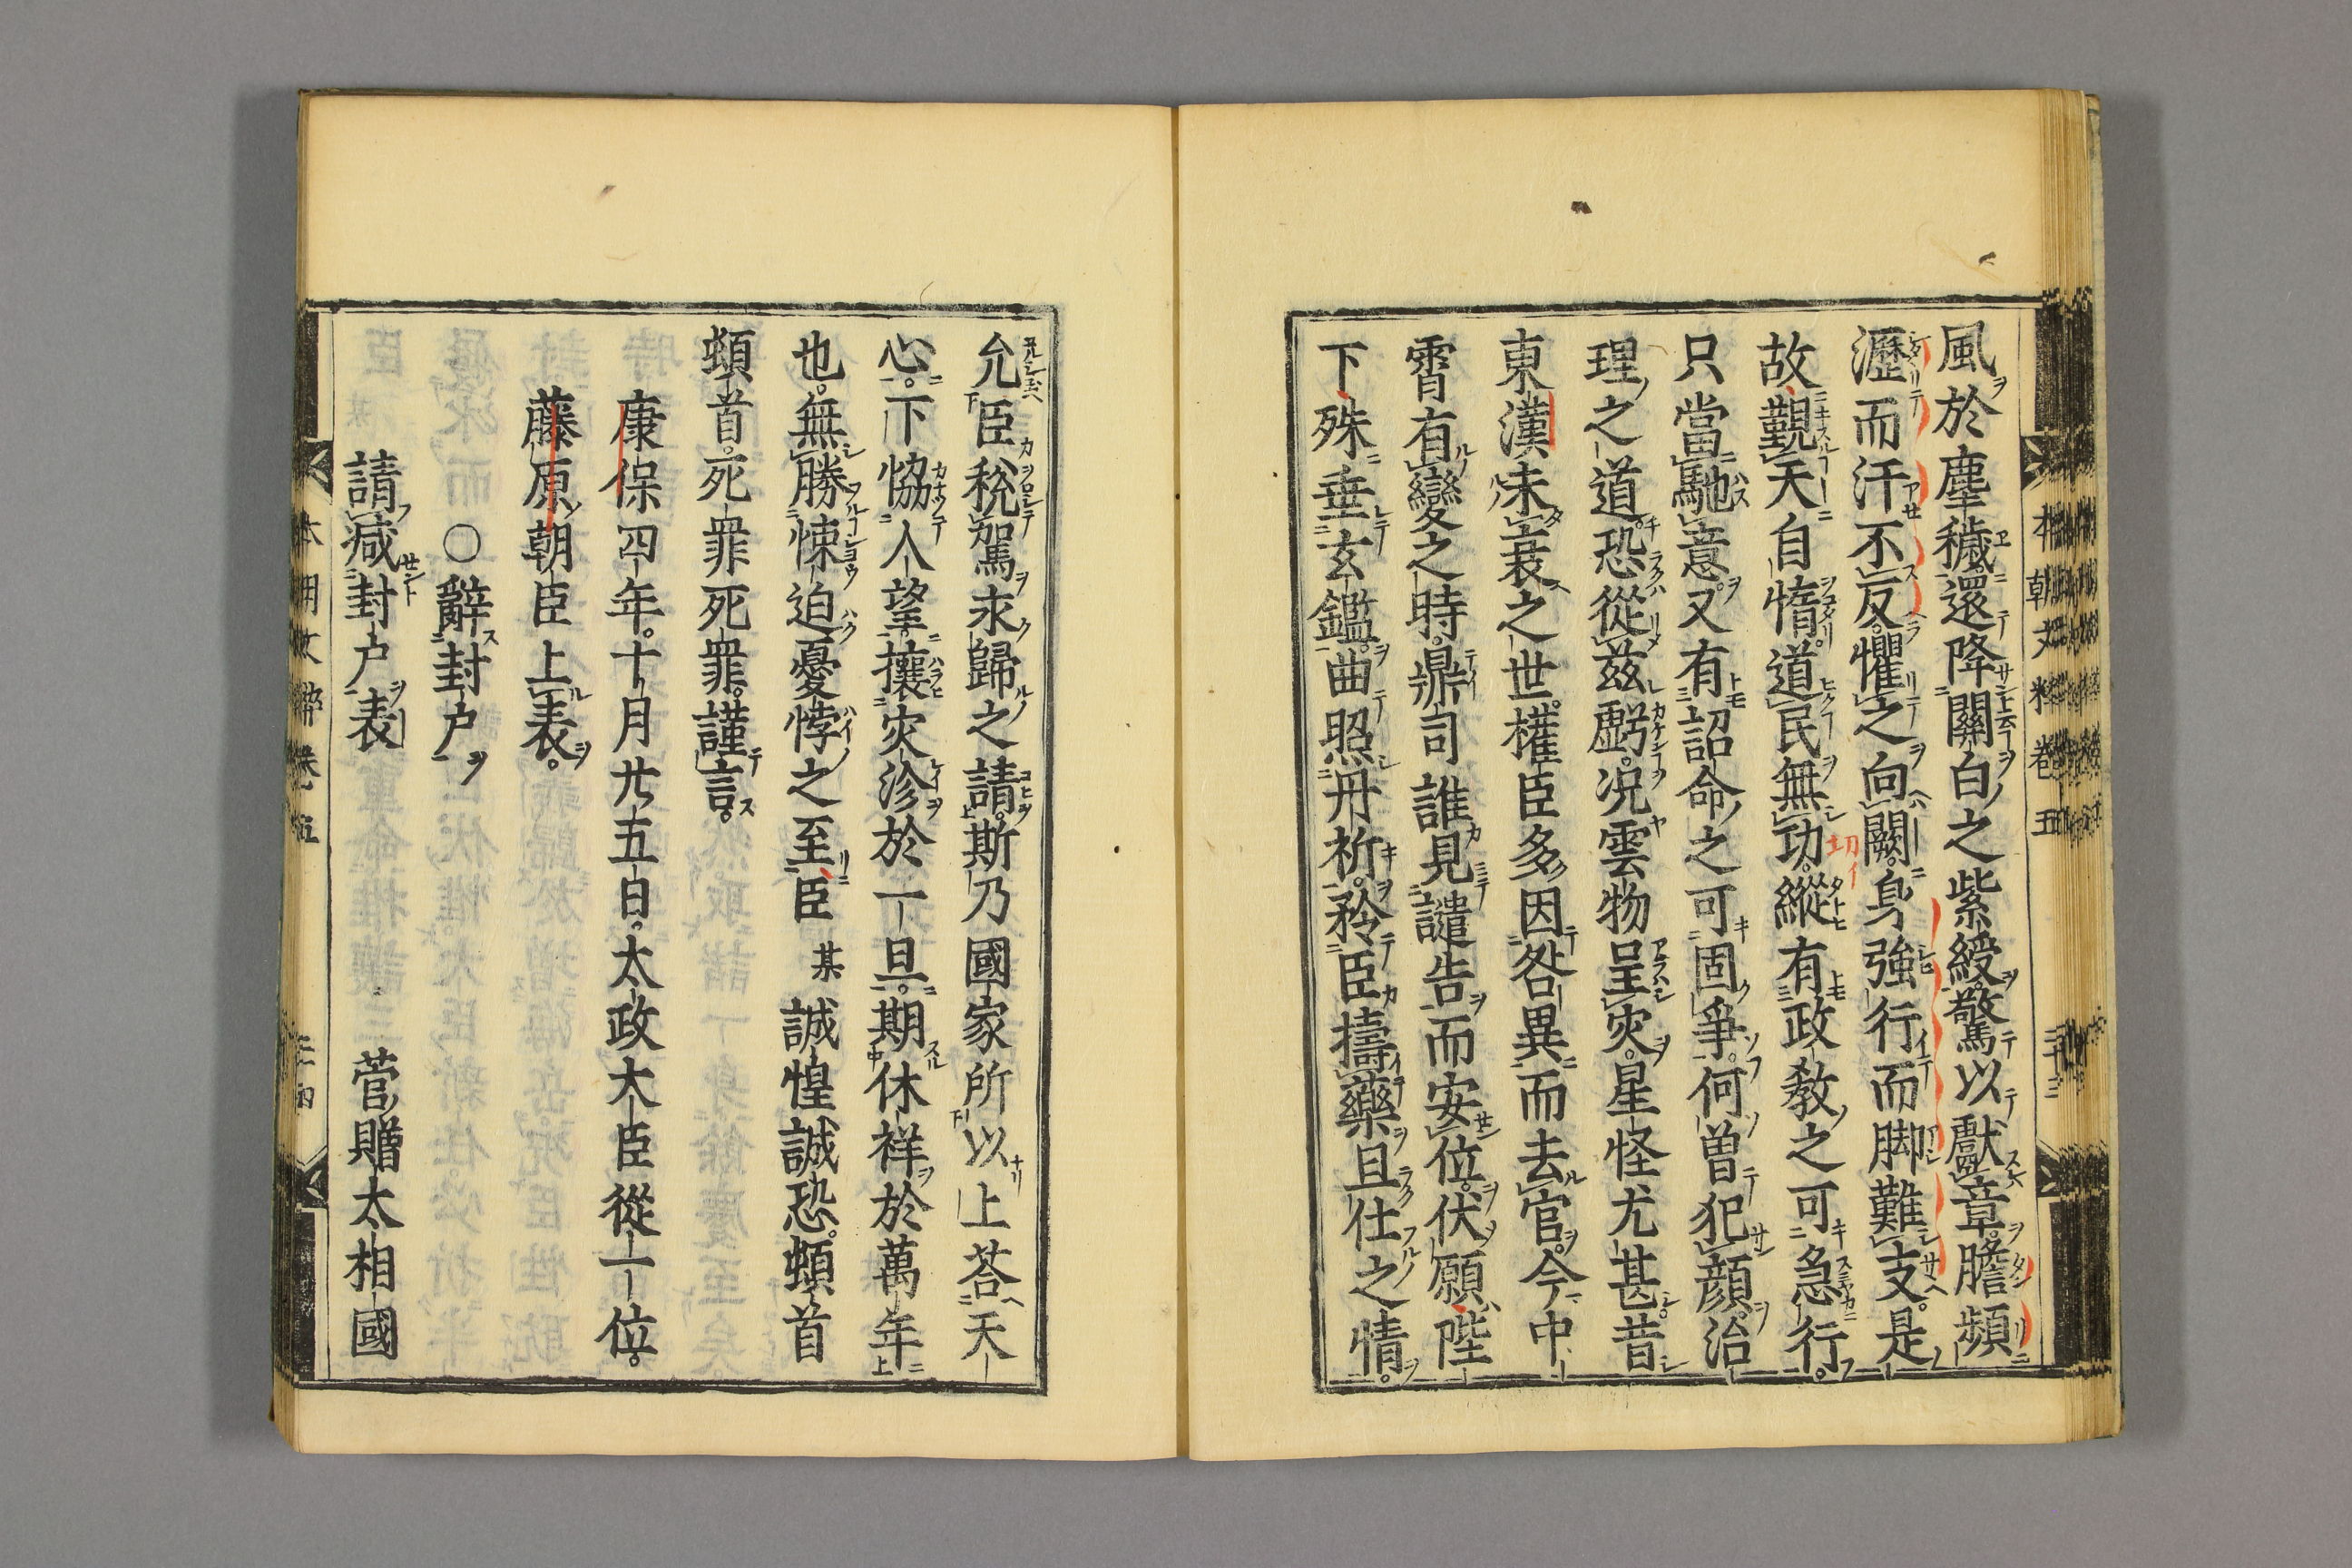 風於塵穢還降關白之紫綬驚以獻章膽頻
瀝而汗不反懼之向闕身強行而脚難支是
故觀天自惰道民無功縱有政教之可急行
只當馳意又有詔命之可固爭何曽犯顔治
理之道恐從茲虧况雲物呈灾星怪尤甚昔
東漢未衰之世權臣多因咎異而去官今中
霄有變之時鼎司誰見譴告而安位伏願陛
下殊垂玄鑑曲照丹祈矜臣擣藥且仕之情
本朝文粹卷五 三十三
允臣稅駕求歸之請斯乃國家所以上荅天
心下恊人望攘灾沴於一旦期休祥於萬年
也無勝悚迫憂悖之至臣某誠惶誠恐頓首
頓首死罪死罪謹言
康保四年十月廿五日太政大臣從一位
藤原朝臣上表
○辭封户
請減封户表 菅贈太相國